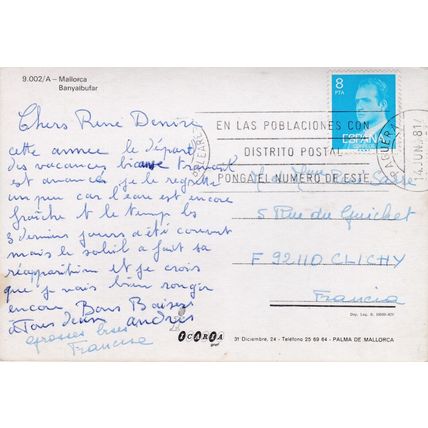 9.002/A - Mallorca
Banyalbufar
Chers René Denise
cette année le départ
des vacances
est avancés je le regrette
un peu car l'eau est encore
fraîche et le temps les
3 derniers jours a été couvert
mais le soleil a fait sa
réapparition et je crois
que je vais bien rougir
encore Bons Baisers
à Tous deux andrés
grosses bises
Francine
8
PTA
ESPAÑA
EN LAS POBLACIONES CON
DISTRITO POSTAL
PONGA EL NUMERO DE ESTE
BALEARES
PAGUERA
14 JUN 81
5 Rue du Guichet
F 92110 CLICHY
Francia
ICARIA
3º Diciembre, 24 - Teléfono 25 69 64 - PALMA DE MALLORCA